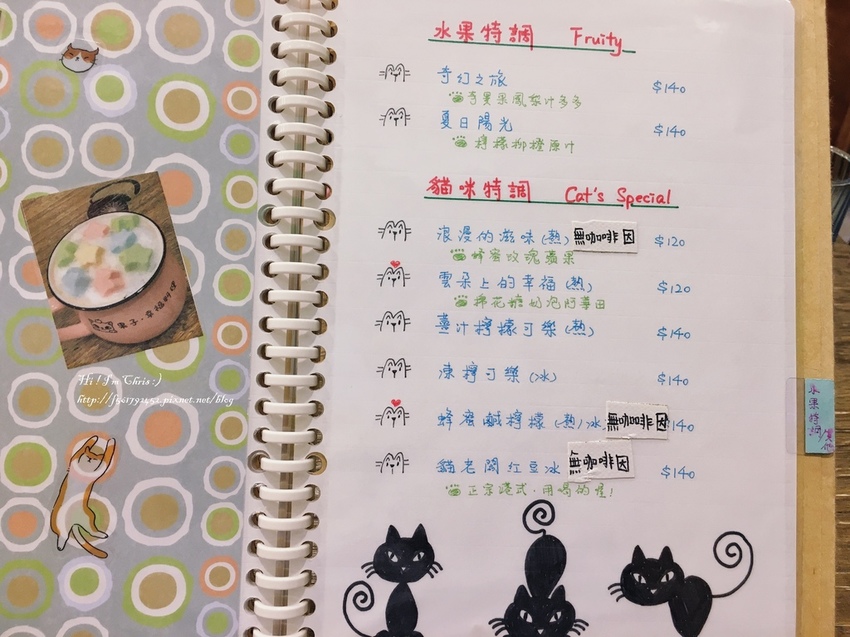 水果特調 Fruity
奇幻之旅 $140
奇異果鳳梨汁多多
夏日陽光 $140
檸檬柳橙原汁
貓咪特調 Cat's Special
浪漫的滋味(熱) 無咖啡因 $120
蜂蜜玫瑰蘋果
雲朵上的幸福(熱) $120
棉花糖奶泡阿華田
薑汁檸檬可樂(熱) $140
凍檸可樂(冰) $140
蜂蜜鹹檸檬(熱/冰 無咖啡因 140
貓老闆紅豆冰 無咖啡因 $140
正宗港式,用喝的喔!
水果特調
Hi! I'm Chris :)